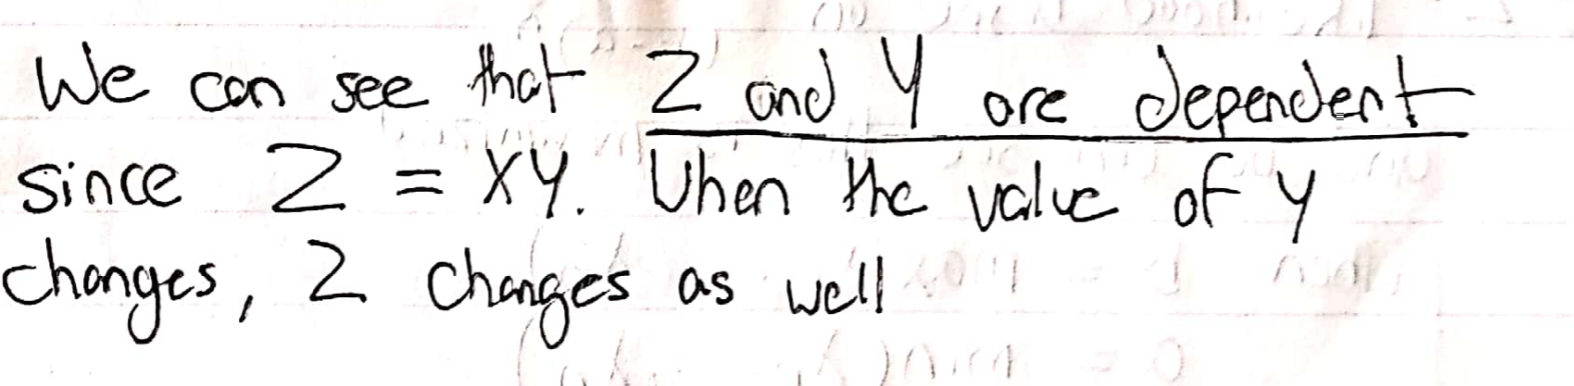 We can see that Z and Y are dependent
since Z = XY. When the value of Y
changes, Z changes as well